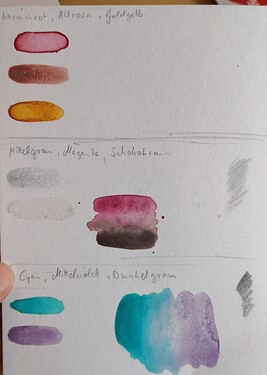 Karminrot, Altrosa, Goldgelb
Mittelgrau, Magenta, Schokobraun
Cyan, Mittelviolett, Dunkelgrau